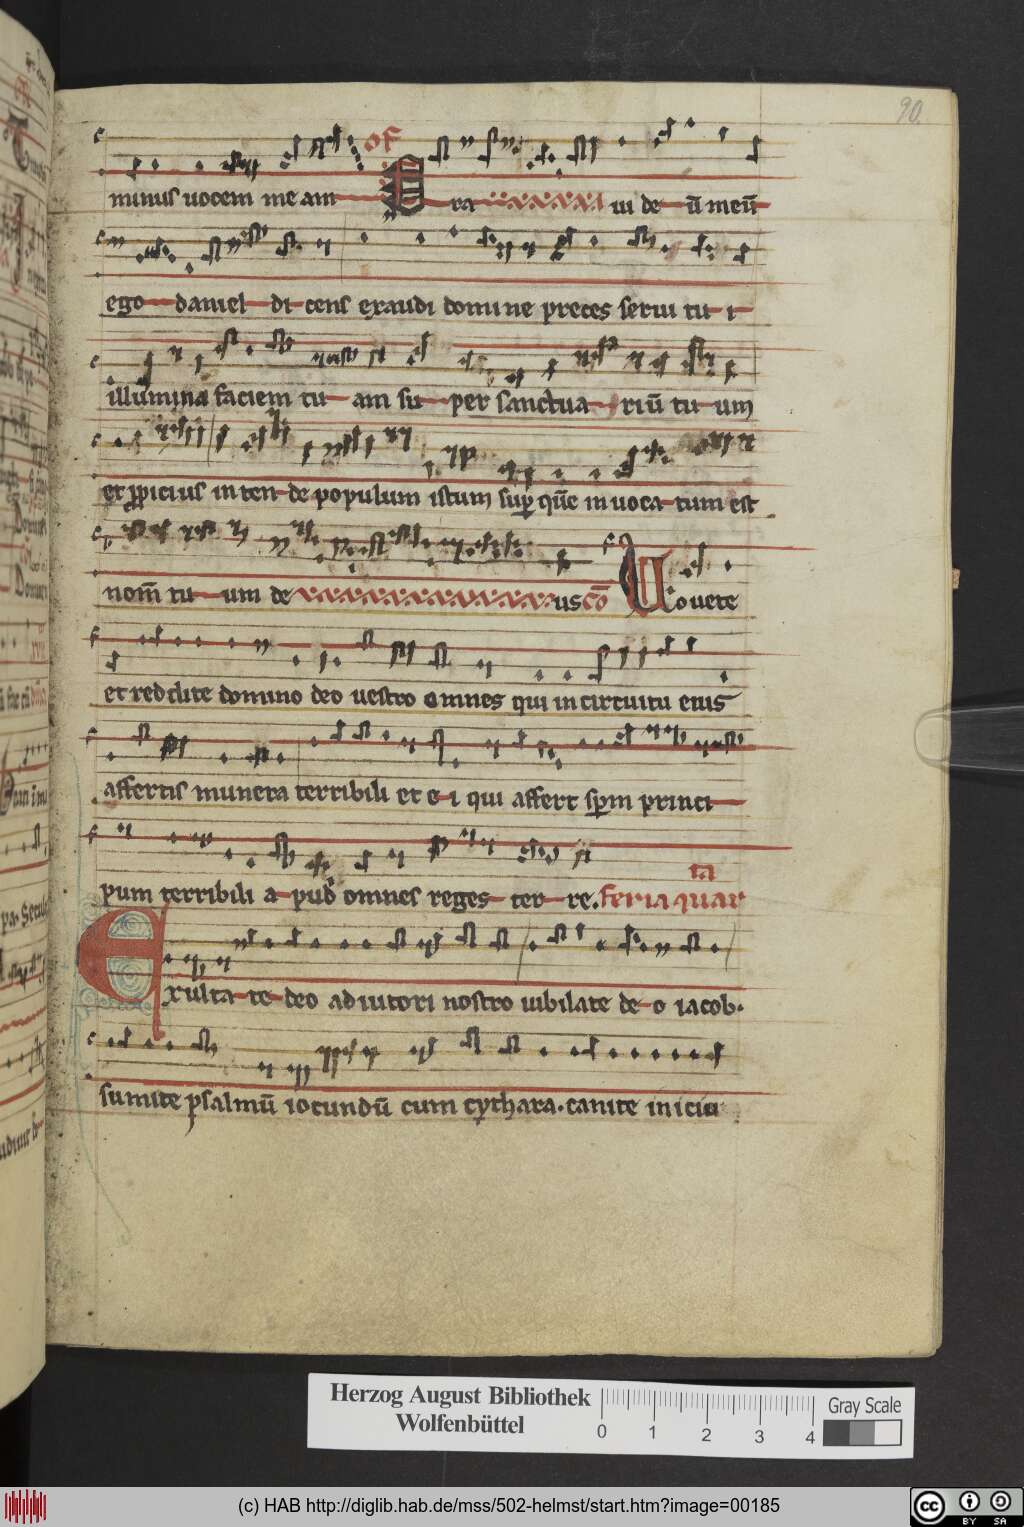 90.
minus uocem me am of Era ui de ū meū
ego daniel di cens exaudi domine preces serui tu i
illumina faciem tu am su per sanctua riū tu um
et ꝓpicius inten de populum istum suꝑ quē inuoca tum est
nom̄ tu um de us cō Uouete
et reddite domino deo uestro omnes qui in circuitu eius
affertis munera terribili et e i qui affert spm princi
pum terribili a pud omnes reges ter re. feria quar ta
Exulta te deo adiutori nostro iubilate de o iacob.
sumite psalmū iocundū cum cythara. canite inicia
Herzog August Bibliothek
Wolfenbüttel
0 1 2 3 4
Gray Scale
(c) HAB http://diglib.hab.de/mss/502-helmst/start.htm?image=00185
cc BY SA